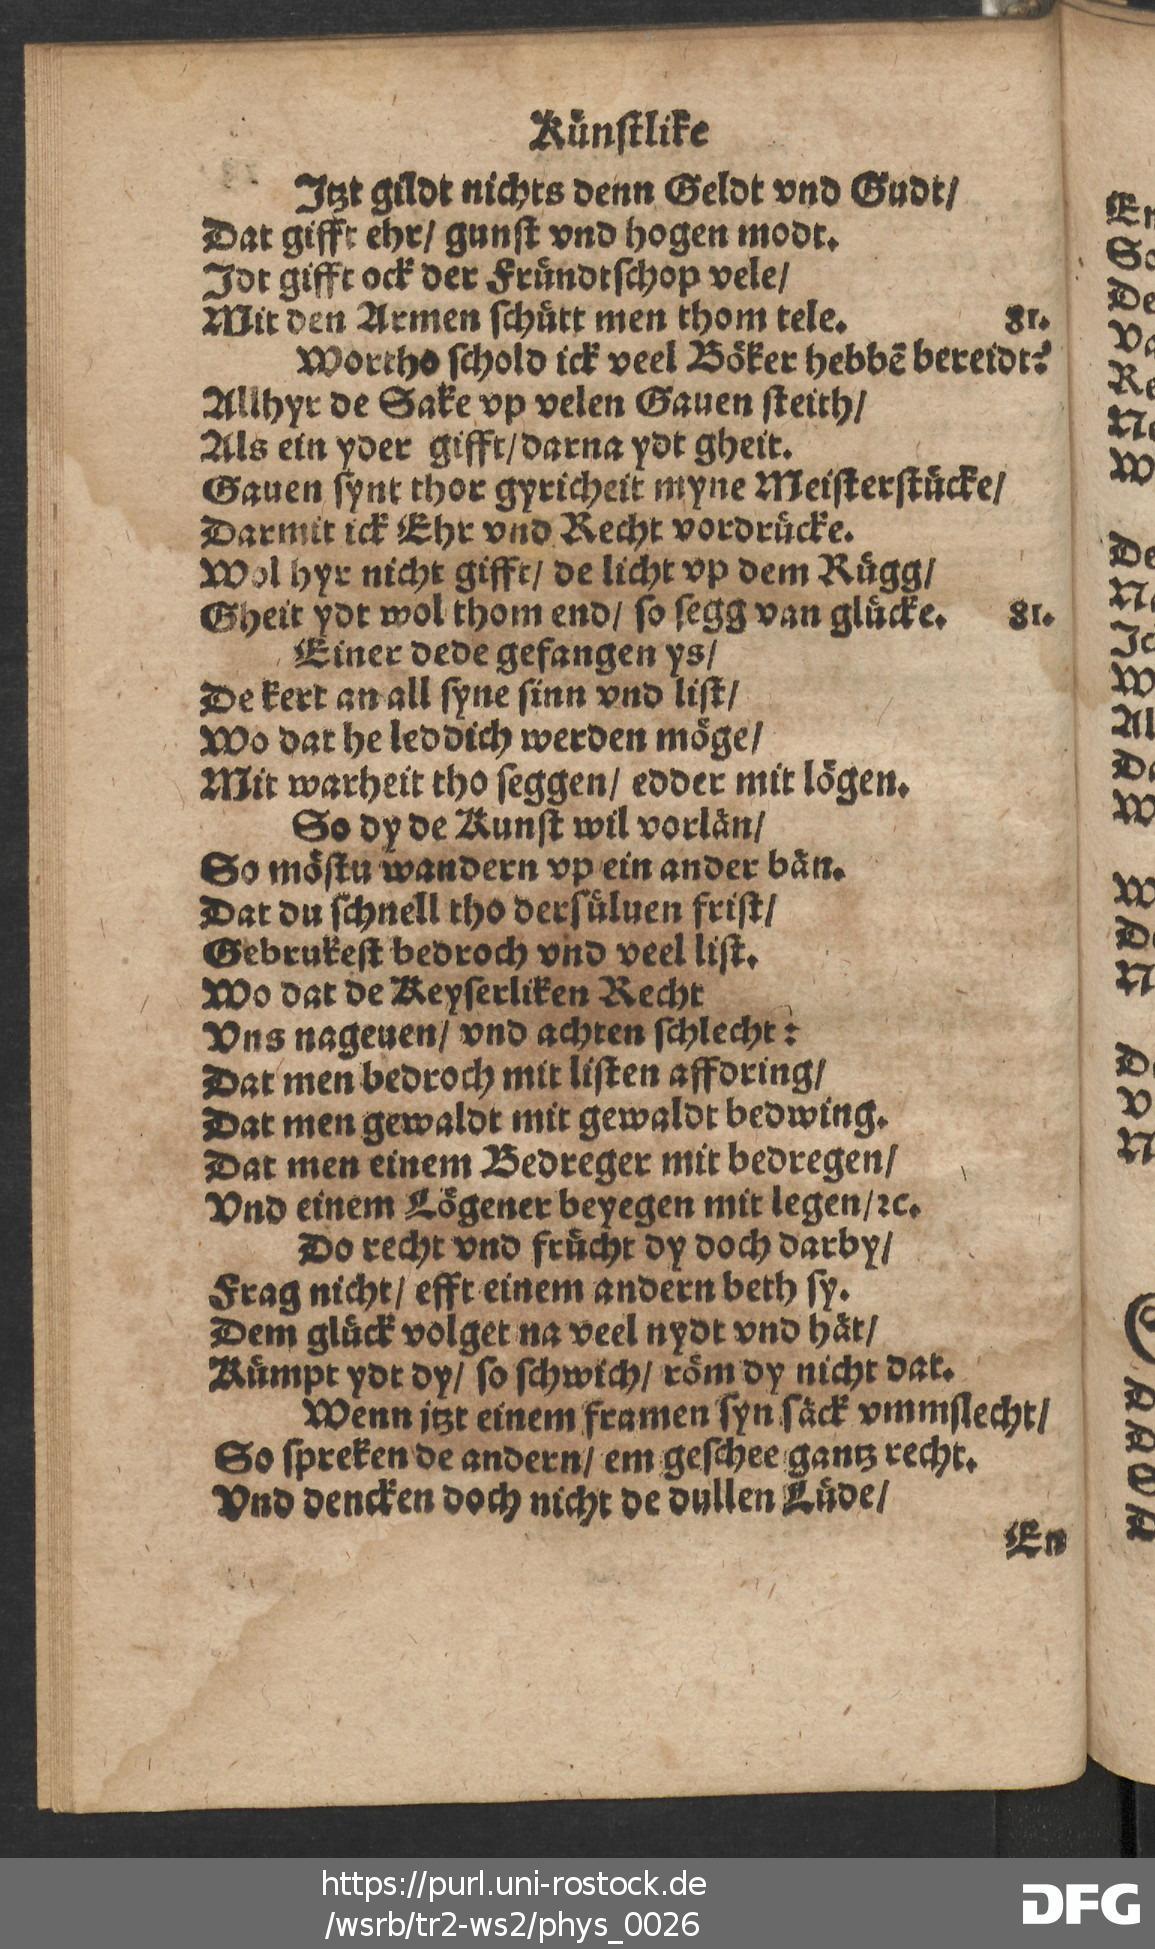 Künstlike
Jtzt gildt nichts denn Geldt vnd Gudt/
Dat gifft ehr/ gunst vnd hogen modt.
Jdt gifft ock der Fründtschop vele/
Mit den Armen schütt men thom tele. 81.
Wortho schold ick veel Böker hebbē bereidt?
Allhyr de Sake vp velen Gauen steith/
Als ein yder gifft/ darna ydt gheit.
Gauen synt thor gyricheit myne Meisterstücke/
Darmit ick Ehr vnd Recht vordrücke.
Wol hyr nicht gifft/ de licht vp dem Rügg/
Gheit ydt wol thom end/ so segg van glücke. 81.
Einer dede gefangen ys/
De kert an all syne sinn vnd list/
Wo dat he leddich werden möge/
Mit warheit tho seggen/ edder mit lögen.
So dy de Kunst wil vorlän/
So möstu wandern vp ein ander bän.
Dat du schnell tho dersüluen frist/
Gebrukest bedroch vnd veel list.
Wo dat de Keyserliken Recht
Vns nageuen/ vnd achten schlecht:
Dat men bedroch mit listen affdring/
Dat men gewaldt mit gewaldt bedwing.
Dat men einem Bedreger mit bedregen/
Vnd einem Lögener beyegen mit legen/ꝛc.
Do recht vnd frücht dy doch darby/
Frag nicht/ efft einem andern beth sy.
Dem glück volget na veel nydt vnd hät/
Kümpt ydt dy/ so schwich/ röm dy nicht dat.
Wenn jtzt einem framen syn säck vmmslecht/
So spreken de andern/ em geschee gantz recht.
Vnd dencken doch nicht de dullen Lüde/
En
https://purl.uni-rostock.de
/wsrb/tr2-ws2/phys_0026
DFG